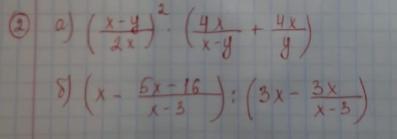 ② а) (\frac{x-y}{2x})^2 \cdot (\frac{4x}{x-y} + \frac{4x}{y})
б) (x - \frac{5x-16}{x-3}) : (3x - \frac{3x}{x-3})